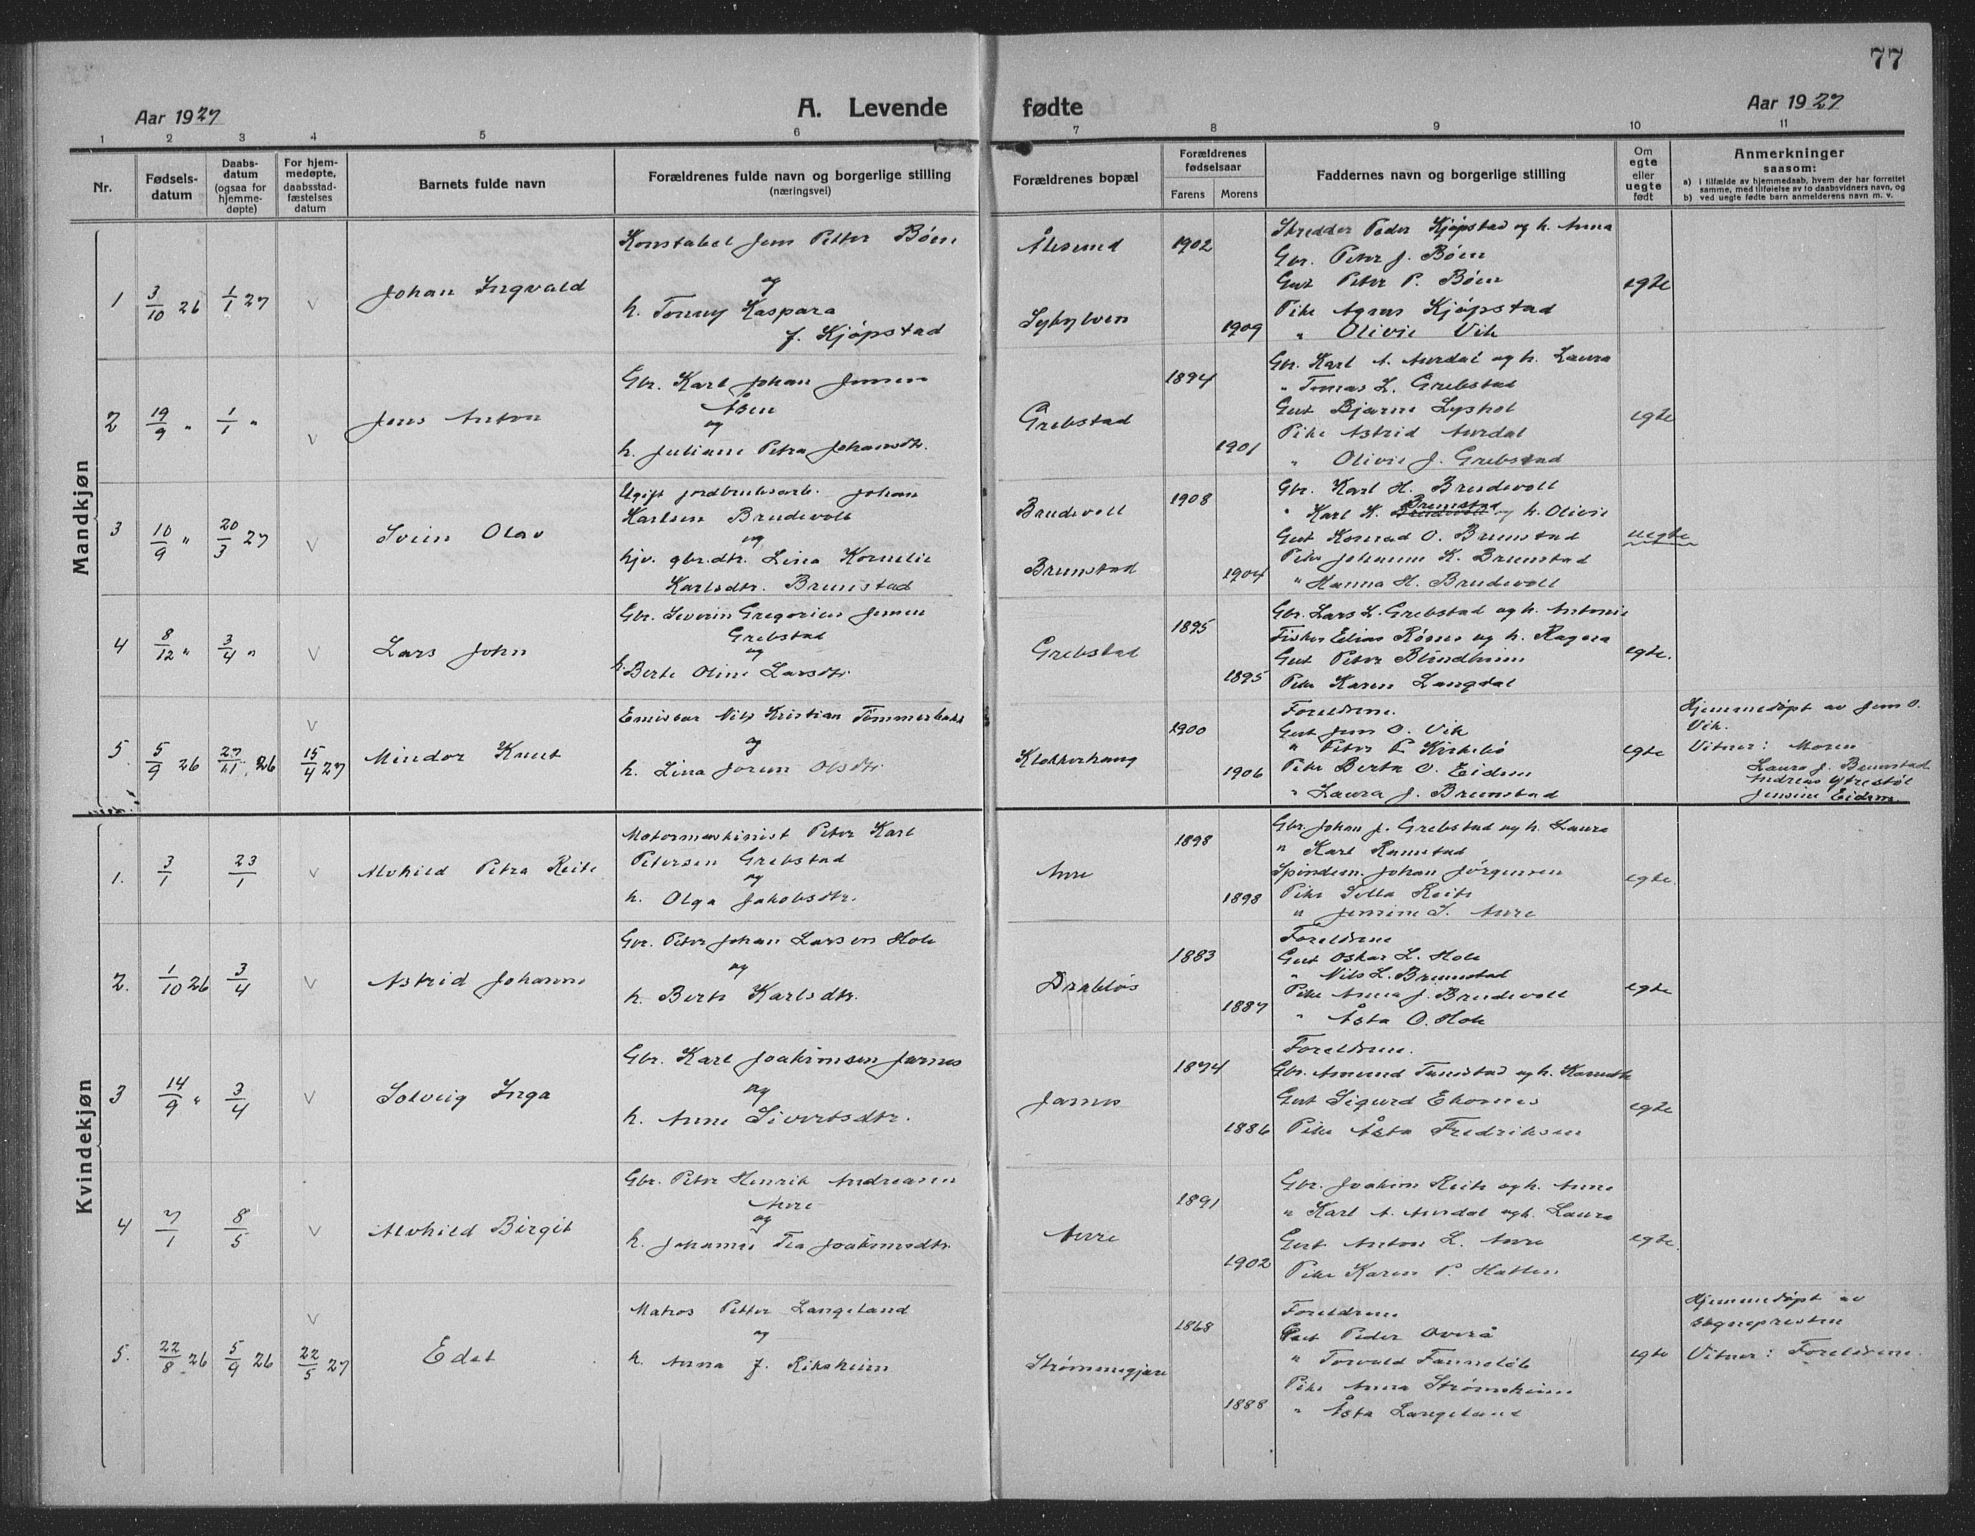 77
Aar 1927
A. Levende fødte
Aar 1927
1 2 3 4 5 6 7 8 9 10 11
Nr.
Fødsels-
datum
Daabs-
datum
(ogsaa for
hjemme-
døpte)
For hjem-
medøpte,
daabsstad-
fæstelses
datum
Barnets fulde navn
Forældrenes fulde navn og borgerlige stilling
(næringsvei)
Forældrenes bopæl
Forældrenes
fødselsaar
Farens Morens
Faddernes navn og borgerlige stilling
Om
egte
eller
uegte
født
Anmerkninger
saasom:
a) i tilfælde av hjemmedaab, hvem der har forrettet
samme, med tilføielse av to daabsvidners navn, og
b) ved uegte fødte barn anmelderens navn m. v.
Mandkjøn
1 3/10 26 1/1 27 v Johan Ingvald
Konstabel Jens Petter Bøen
og
h. Tonny Kaspara
f. Kjøpstad
Ålesund
Sykylven
1902
1909
Skredder Peder Kjøpstad og h. Anna
Gbr. Peter J. Bøen
Gut Peter P. Bøen
Pike Agnes Kjøpstad
" Olivie Vik
egte
2 19/9 " 1/1 " v Jens Anton
Gbr. Karl Johan Jensen
Åsen
og
h. Juliane Petra Johansdtr.
Grebstad
1894
1901
Gbr. Karl A. Aurdal og h. Laura
" Tomas L. Grebstad
Gut Bjarne Lyshol
Pike Astrid Aurdal
" Olivie J. Grebstad
egte
3 10/9 " 20/3 27 v Svein Olav
Ugift jordbruksarb. Johan
Karlsen Brudevoll
og
hjv. gbr.dtr. Lina Kornelie
Karlsdtr. Brunstad
Brudevoll
Brunstad
1908
1904
Gbr. Karl H. Brudevoll
" Karl K. Brunstad og h. Olivie
Gut Konrad O. Brunstad
Pike Johanne K. Brunstad
" Hanna H. Brudevoll
uegte
4 8/12 " 3/4 " v Lars John
Gbr. Severin Gregorius Jensen
Grebstad
og
h. Berte Oline Larsdtr.
Grebstad
1895
1895
Gbr. Lars L. Grebstad og h. Antonie
Fisker Elias Røsnes og h. Ragna
Gut Peter Blindheim
Pike Karen Langdal
egte.
5. 5/9 26 27/11 26 v 15/4 27 Mindor Knut
Emissær Nils Kristian Tømmerbakk
og
h. Lina Jorun Olsdtr.
Klokkerhaug
1900
1906
Foreldrene.
Gut Jens O. Vik
" Peter P. Kirkebø
Pike Berta O. Eidem
" Laura J. Brunstad
egte
Hjemmedøpt av Jens O.
Vik.
Vitner: Moren
Laura J. Brunstad
Andreas Ytrestøl
Jensine Eidem
Kvindekjøn
1. 3/1 23/1 v Alvhild Petra Reite
Motormaskinist Peter Karl
Petersen Grebstad
og
h. Olga Jakobsdtr.
Aure
1898
1898
Gbr. Johan J. Grebstad og h. Laura
" Karl Ramstad
Spindem. Johan Jørgensen
Pike Sella Reite
" Jensine S. Aure
egte
2. 1/10 26 3/4 v Astrid Johanne
Gbr. Peter Johan Larsen Hole
og
h. Berte Karlsdtr.
Drabløs
1883
1887
Foreldrene
Gut Oskar L. Hole
" Nils L. Brunstad
Pike Anna J. Brudevoll
" Åsta O. Hole
egte
3 14/9 " 3/4 v Solveig Inga
Gbr. Karl Joakimsen Jarnes
og
h. Anne Sivertsdtr.
Jarnes
1894
1886
Foreldrene.
Gbr. Amund Tunstad og h.
Gut Sigurd Ekornes
Pike Åsta Fredriksen
egte
4 7/1 8/5 v Alvhild Birgit
Gbr. Peter Henrik Andreasen
Aure
og
h. Johanne Tea Joakimsdtr.
Aure
1891
1902
Gbr. Joakim Reite og h. Anne
" Karl A. Aurdal og h. Laura
Gut Anton L. Aure
Pike Karen P. Hatlen
egte.
5. 22/8 26 5/9 26 v 22/5 27 Edel
Matros Petter Langeland
og
h. Anna f. Riksheim
Strømmegjære
1868
1888
Foreldrene
Gut Peder Overå
" Torvald
Pike Anna Strømsheim
" Åsta Langeland
egte
Hjemmedøpt av
sogneprésten
Vitner: Foreldrene.